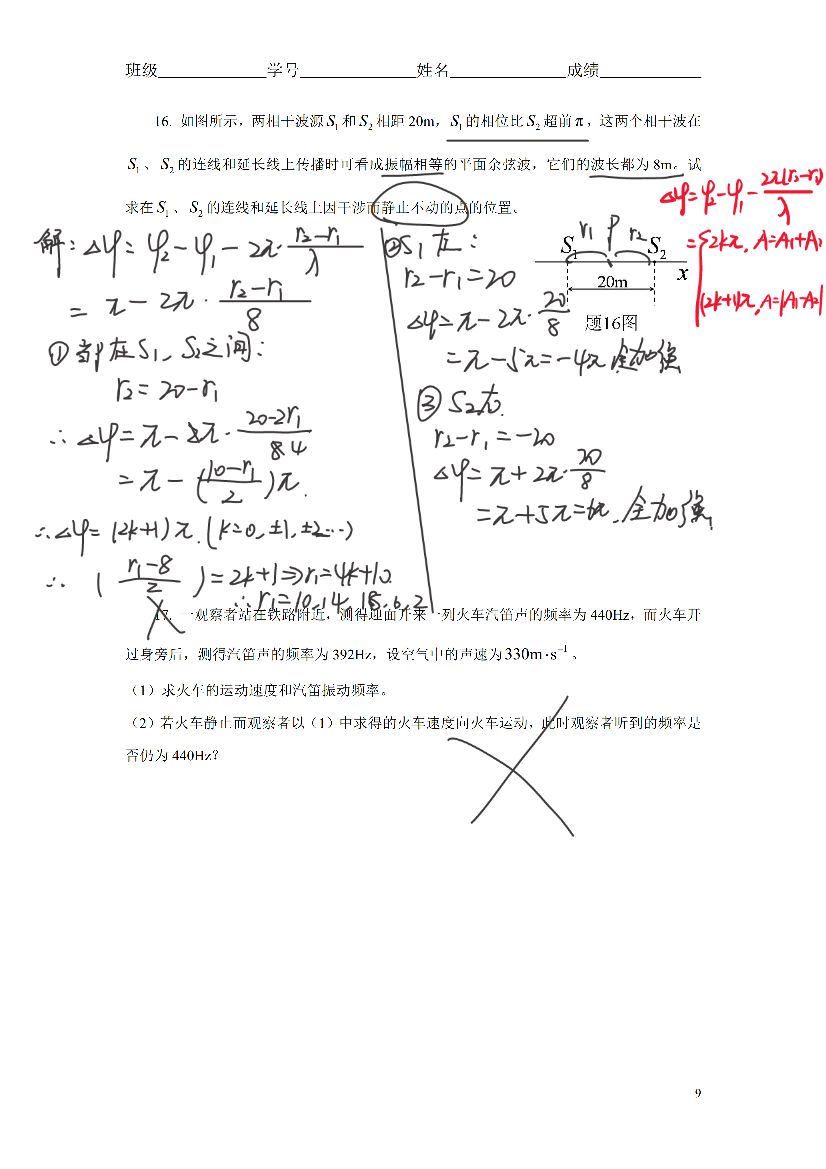 班级 学号 姓名 成绩
16. 如图所示，两相干波源 S₁ 和 S₂ 相距 20m，S₁ 的相位比 S₂ 超前 π，这两个相干波在
S₁ 、 S₂ 的连线和延长线上传播时可看成振幅相等的平面余弦波，它们的波长都为 8m。试
求在 S₁ 、 S₂ 的连线和延长线上因干涉而静止不动的点的位置。
Δφ=φ₂-φ₁-2π(r₂-r₁)/λ
={2kπ, A=A₁+A₂
(2k+1)π, A=|A₁-A₂|
解：Δφ=φ₂-φ₁-2π·(r₂-r₁)/λ
=π-2π·(r₂-r₁)/8
①若在S₁、S₂之间：
r₂=20-r₁
∴Δφ=π-2π·(20-2r₁)/8 4
=π-(10-r₁/2)π.
∴Δφ=(2k+1)π.(k=0,±1,±2…)
∴ (r₁-8/2)=2k+1⇒r₁=4k+10
∴r₁=10,14,18,6,2
②S₁左：
r₂-r₁=20
Δφ=π-2π·20/8
=π-5π=-4π 全加强
③S₂右.
r₂-r₁=-20
Δφ=π+2π·20/8
=π+5π=6π.全加强
r₁ P r₂
S₁ S₂
20m x
题16图
17. 一观察者站在铁路附近，测得迎面开来一列火车汽笛声的频率为 440Hz，而火车开
过身旁后，测得汽笛声的频率为 392Hz，设空气中的声速为 330m·s⁻¹ 。
（1）求火车的运动速度和汽笛振动频率。
（2）若火车静止而观察者以（1）中求得的火车速度向火车运动，此时观察者听到的频率是
否仍为 440Hz？
9